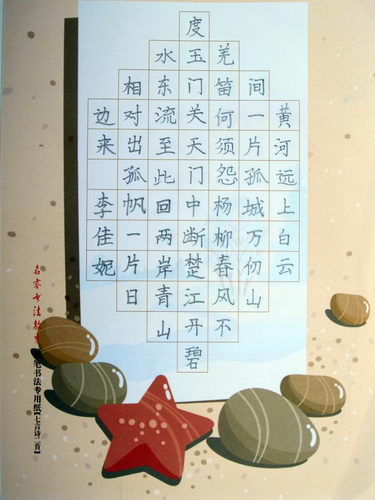 黄河远上白云
间一片孤城万仞山
羌笛何须怨杨柳春风不
度玉门关天门中断楚江开碧
水东流至此回两岸青山
相对出孤帆一片日
边来 李佳妮
笔书法专用纸【七言诗二首】